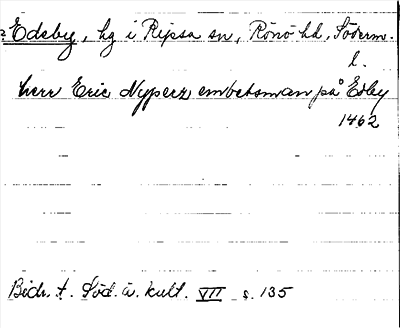 Edsby, hg i Ripsa sn, Rönö hd, Söderm.
l.
herr Eric Nypers embetsman på Edby
1462
Bidr. t. Söd. ä. kult. VII s. 135